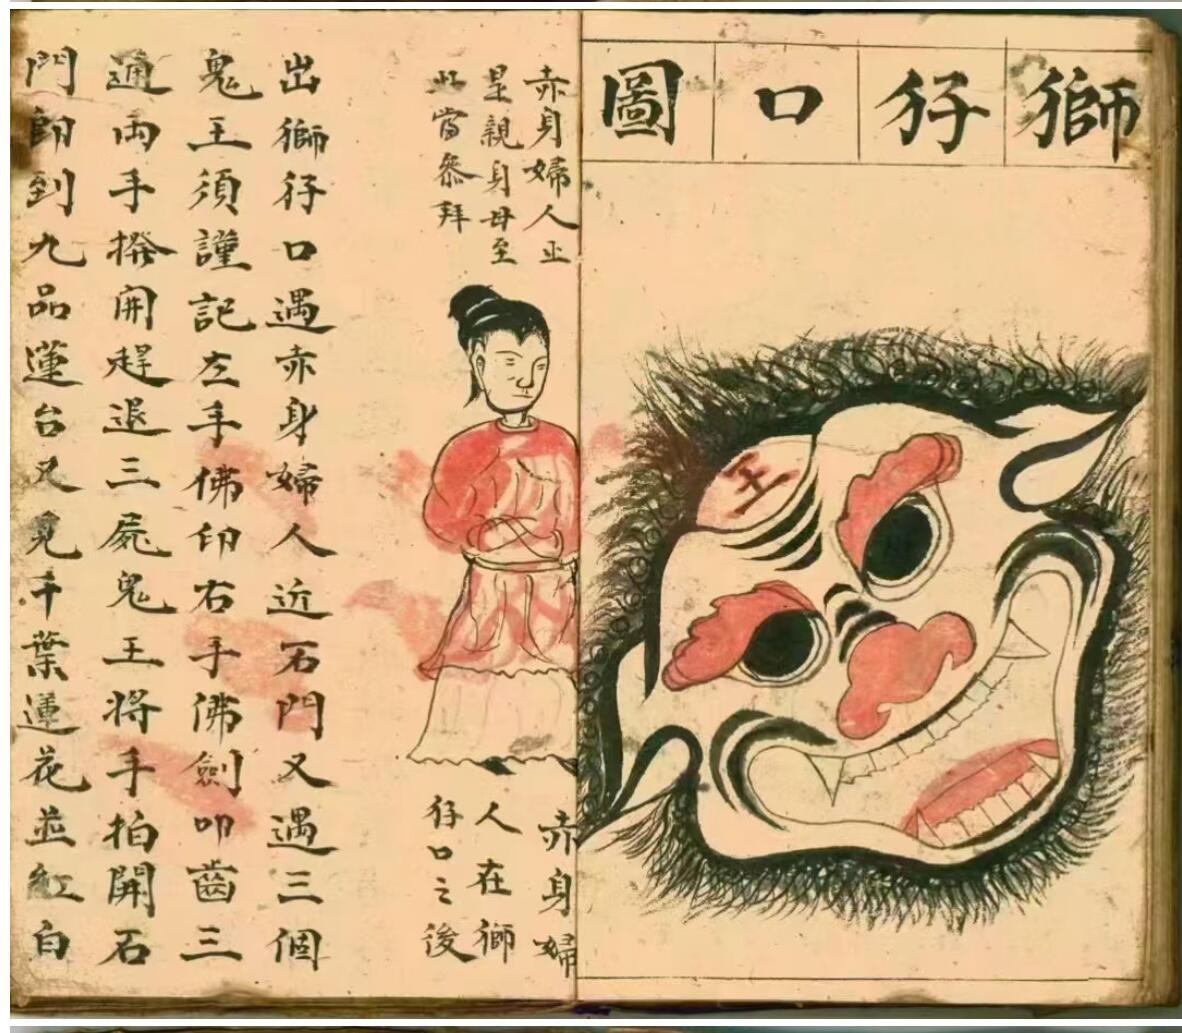 獅仔口圖
王
赤身婦人正
是親身母至
此當叅拜
赤身婦
人在獅
仔口之後
出獅仔口遇赤身婦人近石門又遇三個
鬼王須謹記左手佛印右手佛劍叩齒三
通両手撥開趕退三屍鬼王将手拍開石
門即到九品蓮台又見千葉蓮花並紅白